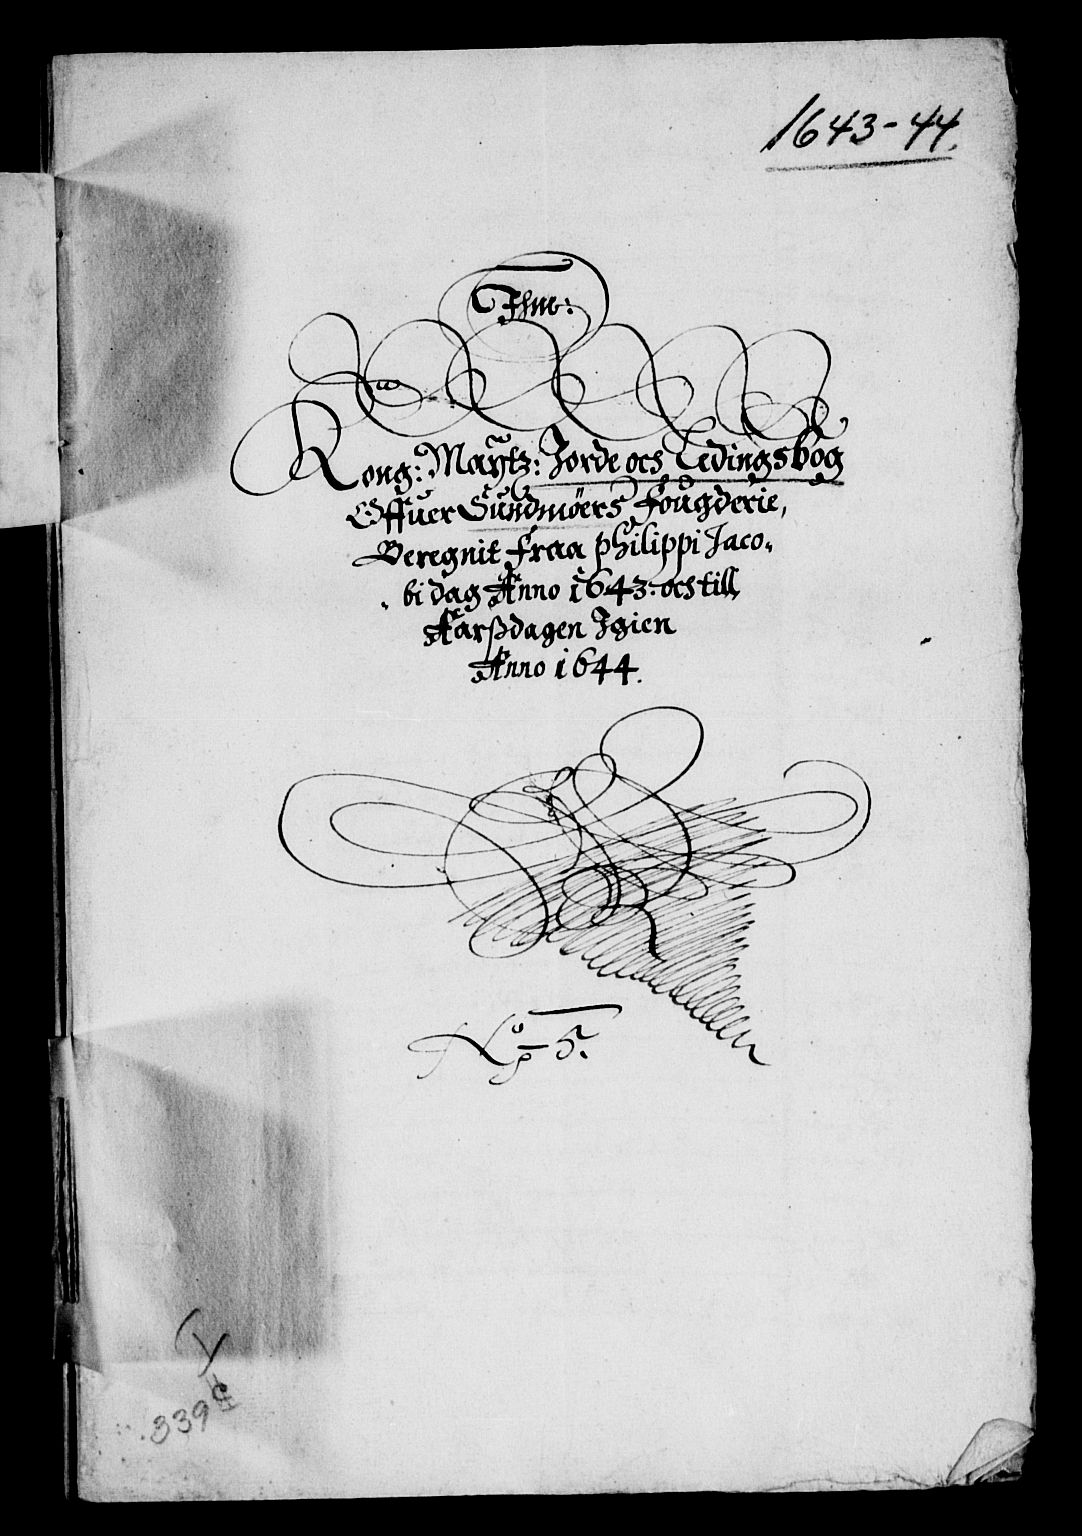 1643-44.
Kong: Maÿtz: Jorde och Ledingsbog
Offuer Sundmøers fougderie,
Beregnit fraa philippi Jaco-
bi dag Anno 1643. och till
Aarßdagen Igien
Anno 1644.
No 5.
339